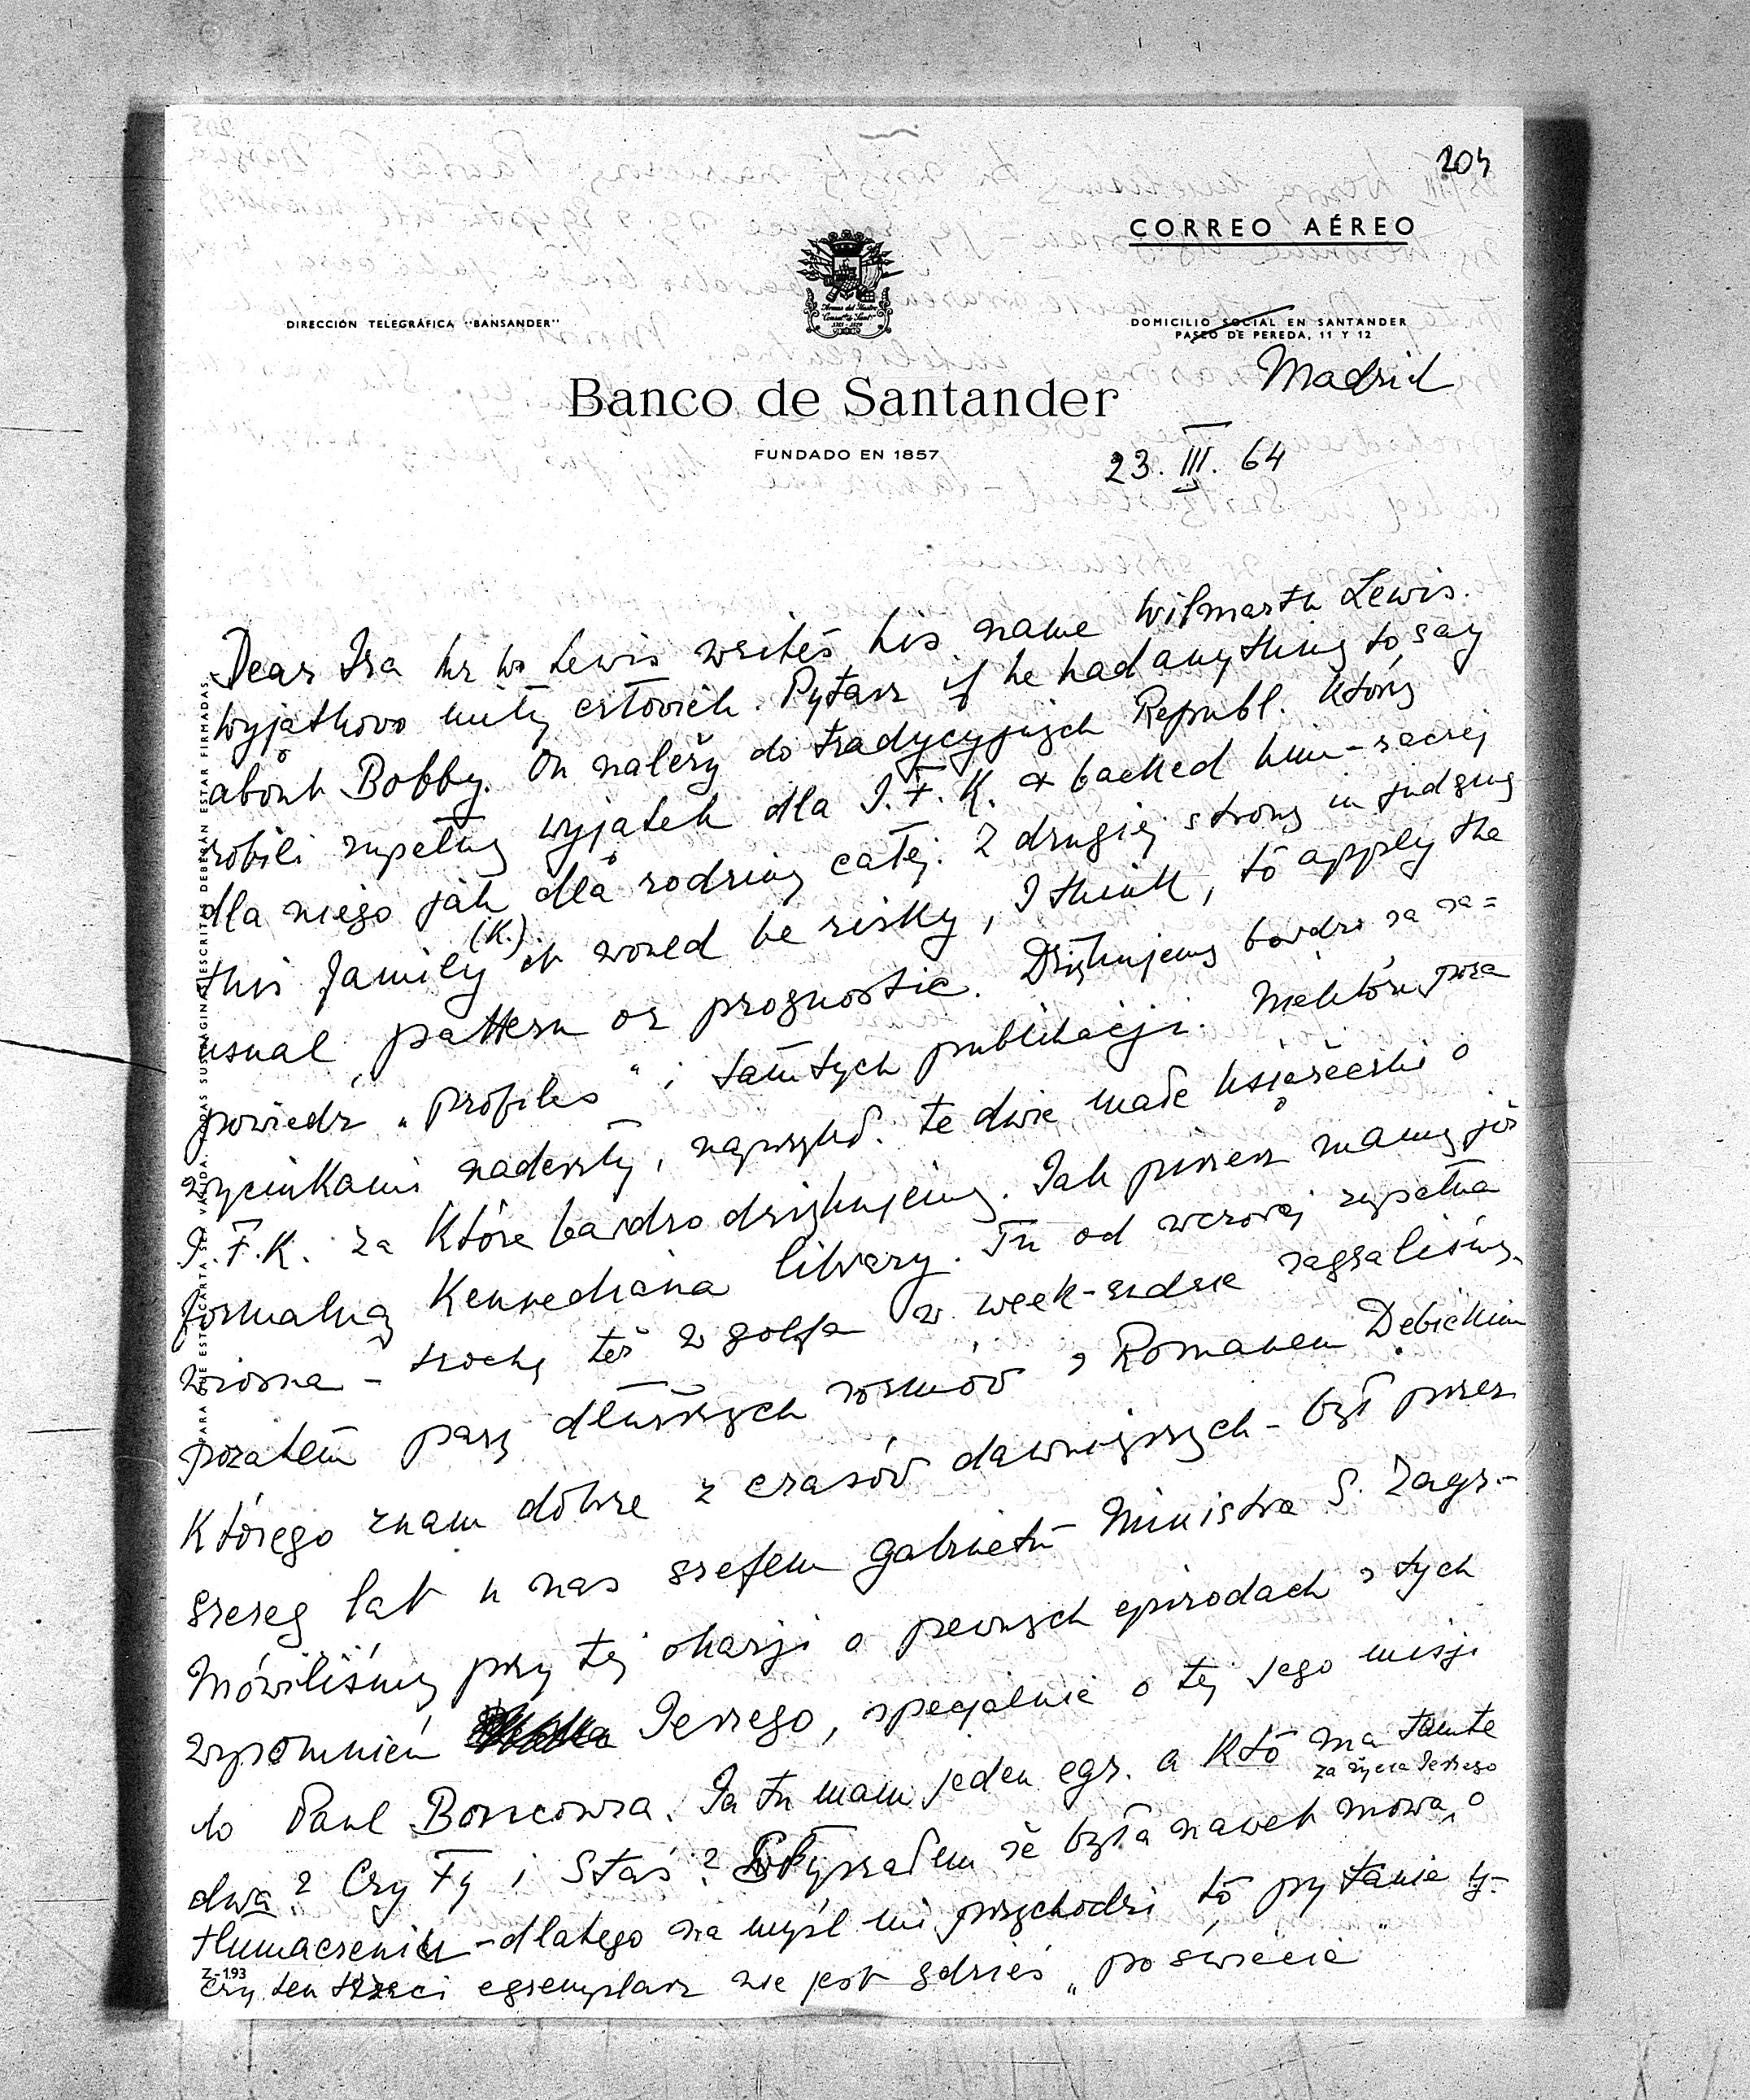 204
CORREO AÉREO
DIRECCIÓN TELEGRÁFICA "BANSANDER"
DOMICILIO SOCIAL EN SANTANDER
PASEO DE PEREDA, 11 Y 12
Madrid
Banco de Santander
FUNDADO EN 1857
23. III. 64
Dear Ira Mr W Lewis writes his name Wilmarth Lewis.
Wyjątkovo miły człoviek. Pytasz if he had anything to say
about Bobby. On należy do tradycyjnych Republ. którzy
robili zupełny wyjątek dla J.F.K. & backed him - raczej
dla niego jak dla rodziny całej. Z drugiej strony in judging
this family (K.) it would be risky, I think, to apply the
usual pattern or prognostic. Dziękujemy bardzo za za=
powiedź „Profiles" i tamtych publikacji. Niektóre poza
wycinkami nadeszły, naprzykł. te dwie małe książeczki o
J.F.K. za które bardzo dziękujemy. Jak piszesz mamy już
formalną Kennediana library. Tu od wczoraj zupełna
wiosna - trochę też w golfa w week-endzie zagraliśmy.
pozatem parę dłuższych rozmów z Romanem Dębickim
którego znam dobrze z czasów dawniejszych - był przez
szereg lat u nas szefem gabinetu Ministra S. Zagr.-
Mówiliśmy przy tej okazji o pewnych epizodach z tych
wspomnień Jerzego, specjalnie o tej jego misji
do Paul Boncoura. Ja tu mam jeden egz. a kto ma tamte
dwa? Czy Ty i Staś? Słyszałem że była nawet mowa za życia Jerzego o
tłumaczeniu - dlatego na myśl mi przychodzi to pytanie
czy ten trzeci egzemplarz nie jest gdzieś „po świecie"
Z-193
PARA QUE ESTA CARTA SEA VÁLIDA, LAS SUS PAGINAS ESCRITAS DEBERÁN ESTAR FIRMADAS.